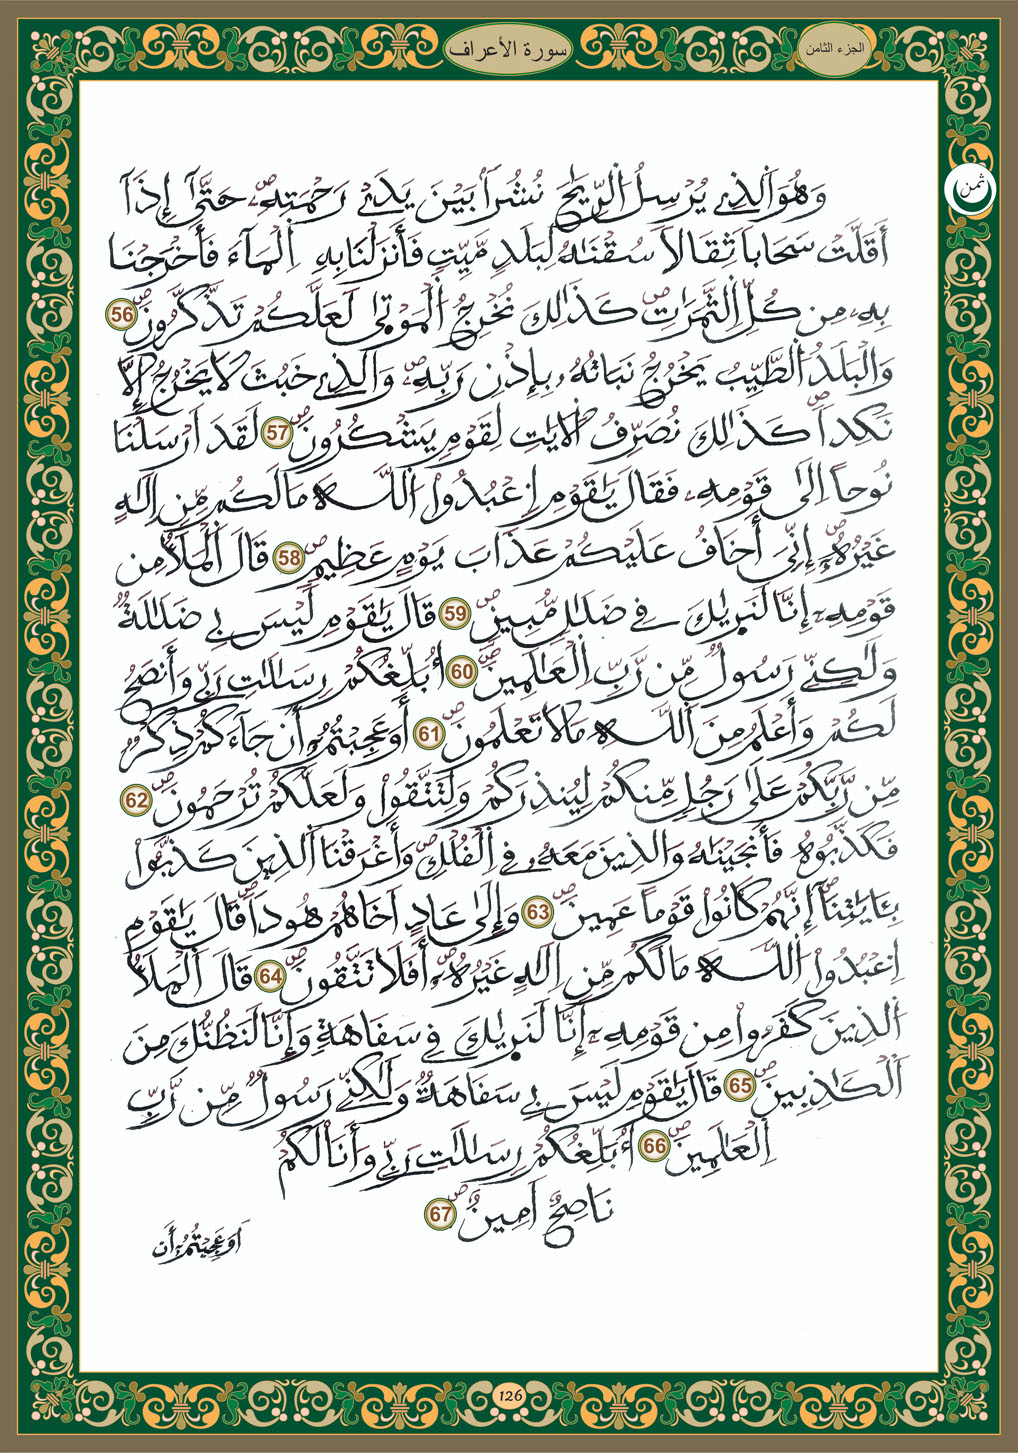 الجزء الثامن
سورة الأعراف
ثمن
وَهُوَ اَلذِے يُرْسِلُ اُلرِّيَٰحَ نُشُراَۢ بَيْنَ يَدَےْ رَحْمَتِهِۦۖ حَتَّىٰٓ إِذَآ
أَقَلَّتْ سَحَاباٗ ثِقَالاٗ سُقْنَٰهُ لِبَلَدٖ مَّيِّتٖ فَأَنزَلْنَا بِهِ اِ۬لْمَآءَ فَأَخْرَجْنَا
بِهِۦ مِن كُلِّ اِ۬لثَّمَرَٰتِۖ كَذَٰلِكَ نُخْرِجُ اُ۬لْمَوْتَىٰ لَعَلَّكُمْ تَذَّكَّرُونَۖ 56
وَالْبَلَدُ اُ۬لطَّيِّبُ يَخْرُجُ نَبَاتُهُۥ بِإِذْنِ رَبِّهِۦۖ وَالذِے خَبُثَ لَا يَخْرُجُ إِلَّا
نَكِداٗۖ كَذَٰلِكَ نُصَرِّفُ اُ۬لْأٓيَٰتِ لِقَوْمٖ يَشْكُرُونَۖ 57 لَقَدَ اَرْسَلْنَا
نُوحاً اِلَىٰ قَوْمِهِۦ فَقَالَ يَٰقَوْمِ اِ۟عْبُدُواْ اُ۬للَّهَ مَا لَكُم مِّنِ اِلَٰهٍ
غَيْرُهُۥٓۖ إِنِّيَ أَخَافُ عَلَيْكُمْ عَذَابَ يَوْمٍ عَظِيمٖۖ 58 قَالَ اَ۬لْمَلَأُ مِن
قَوْمِهِۦٓ إِنَّا لَنَرَيٰكَ فِے ضَلَٰلٖ مُّبِينٖۖ 59 قَالَ يَٰقَوْمِ لَيْسَ بِے ضَلَٰلَةٞ
وَلَٰكِنِّے رَسُولٞ مِّن رَّبِّ اِ۬لْعَٰلَمِينَۖ 60 أُبَلِّغُكُمْ رِسَٰلَٰتِ رَبِّے وَأَنصَحُ
لَكُمْ وَأَعْلَمُ مِنَ اَ۬للَّهِ مَا لَا تَعْلَمُونَۖ 61 أَوَعَجِبْتُمُۥٓ أَن جَآءَكُمْ ذِكْرٞ
مِّن رَّبِّكُمْ عَلَىٰ رَجُلٖ مِّنكُمْ لِيُنذِرَكُمْ وَلِتَتَّقُواْ وَلَعَلَّكُمْ تُرْحَمُونَۖ 62
فَكَذَّبُوهُ فَأَنجَيْنَٰهُ وَالذِينَ مَعَهُۥ فِے اِ۬لْفُلْكِۖ وَأَغْرَقْنَا اَ۬لذِينَ كَذَّبُواْ
بِـَٔايَٰتِنَآۖ إِنَّهُمْ كَانُواْ قَوْماً عَمِينَۖ 63 وَإِلَىٰ عَادٍ اَخَاهُمْ هُوداٗۖ قَالَ يَٰقَوْمِ
اِ۟عْبُدُواْ اُ۬للَّهَ مَا لَكُم مِّنِ اِلَٰهٍ غَيْرُهُۥٓۖ أَفَلَا تَتَّقُونَۖ 64 قَالَ اَ۬لْمَلَأُ
اُ۬لذِينَ كَفَرُواْ مِن قَوْمِهِۦٓ إِنَّا لَنَرَيٰكَ فِے سَفَاهَةٖ وَإِنَّا لَنَظُنُّكَ مِنَ
اَ۬لْكَٰذِبِينَۖ 65 قَالَ يَٰقَوْمِ لَيْسَ بِے سَفَاهَةٞ وَلَٰكِنِّے رَسُولٞ مِّن رَّبِّ
اِ۬لْعَٰلَمِينَۖ 66 أُبَلِّغُكُمْ رِسَٰلَٰتِ رَبِّے وَأَنَا لَكُمْ
نَاصِحٌ اَمِينٌۖ 67
اَوَعَجِبْتُمُۥٓ أَن
126